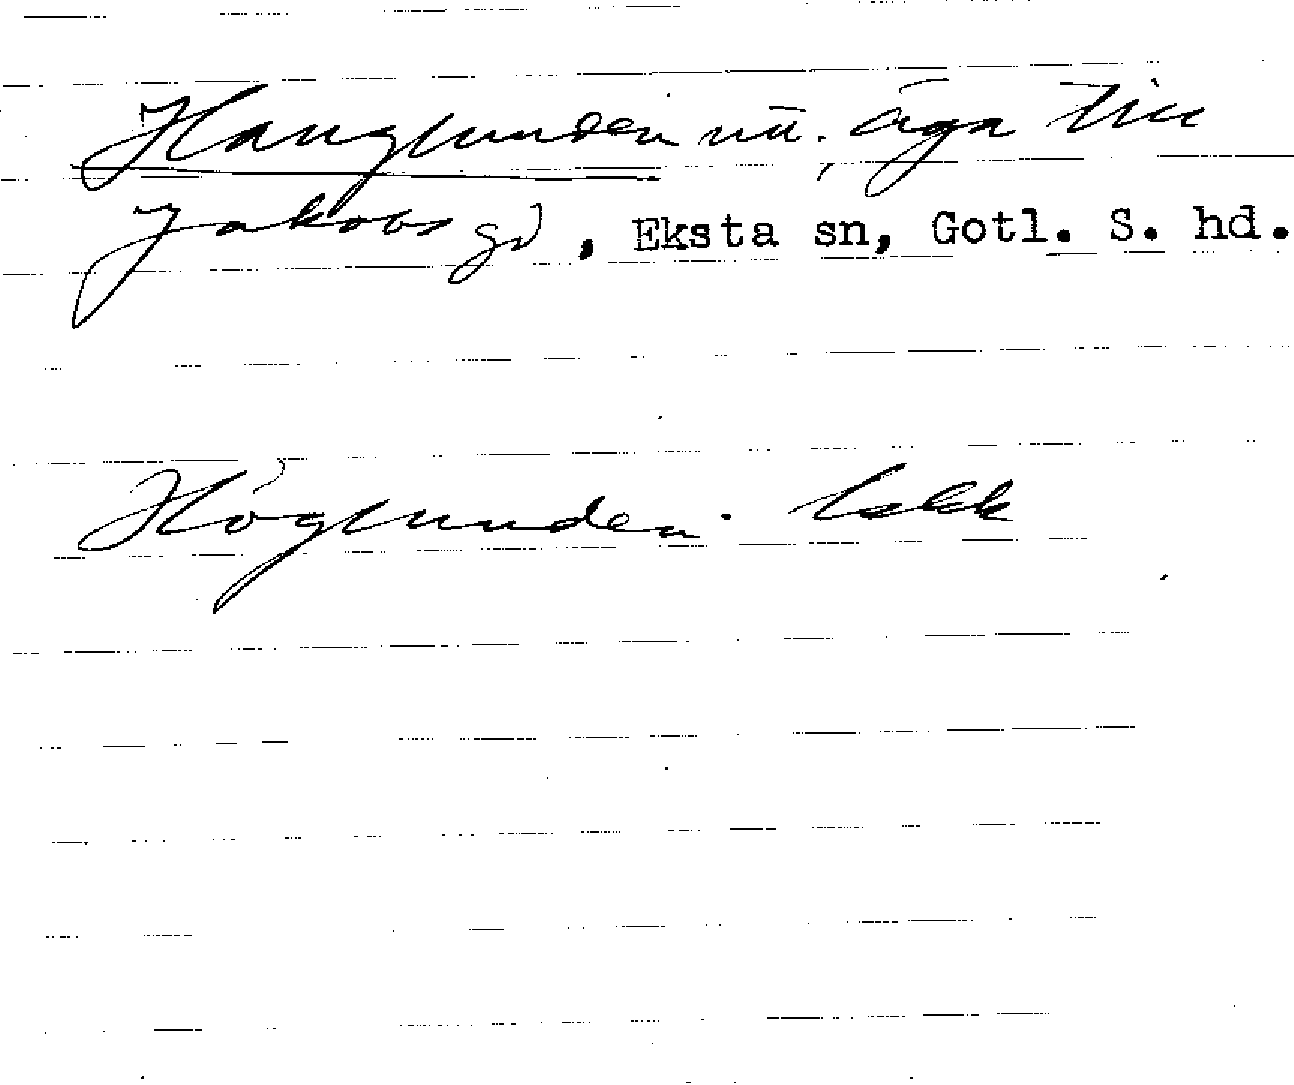 Hauglunden nu, äga till
Jakobs gd, Eksta sn, Gotl. S. hd.
Höglunden.